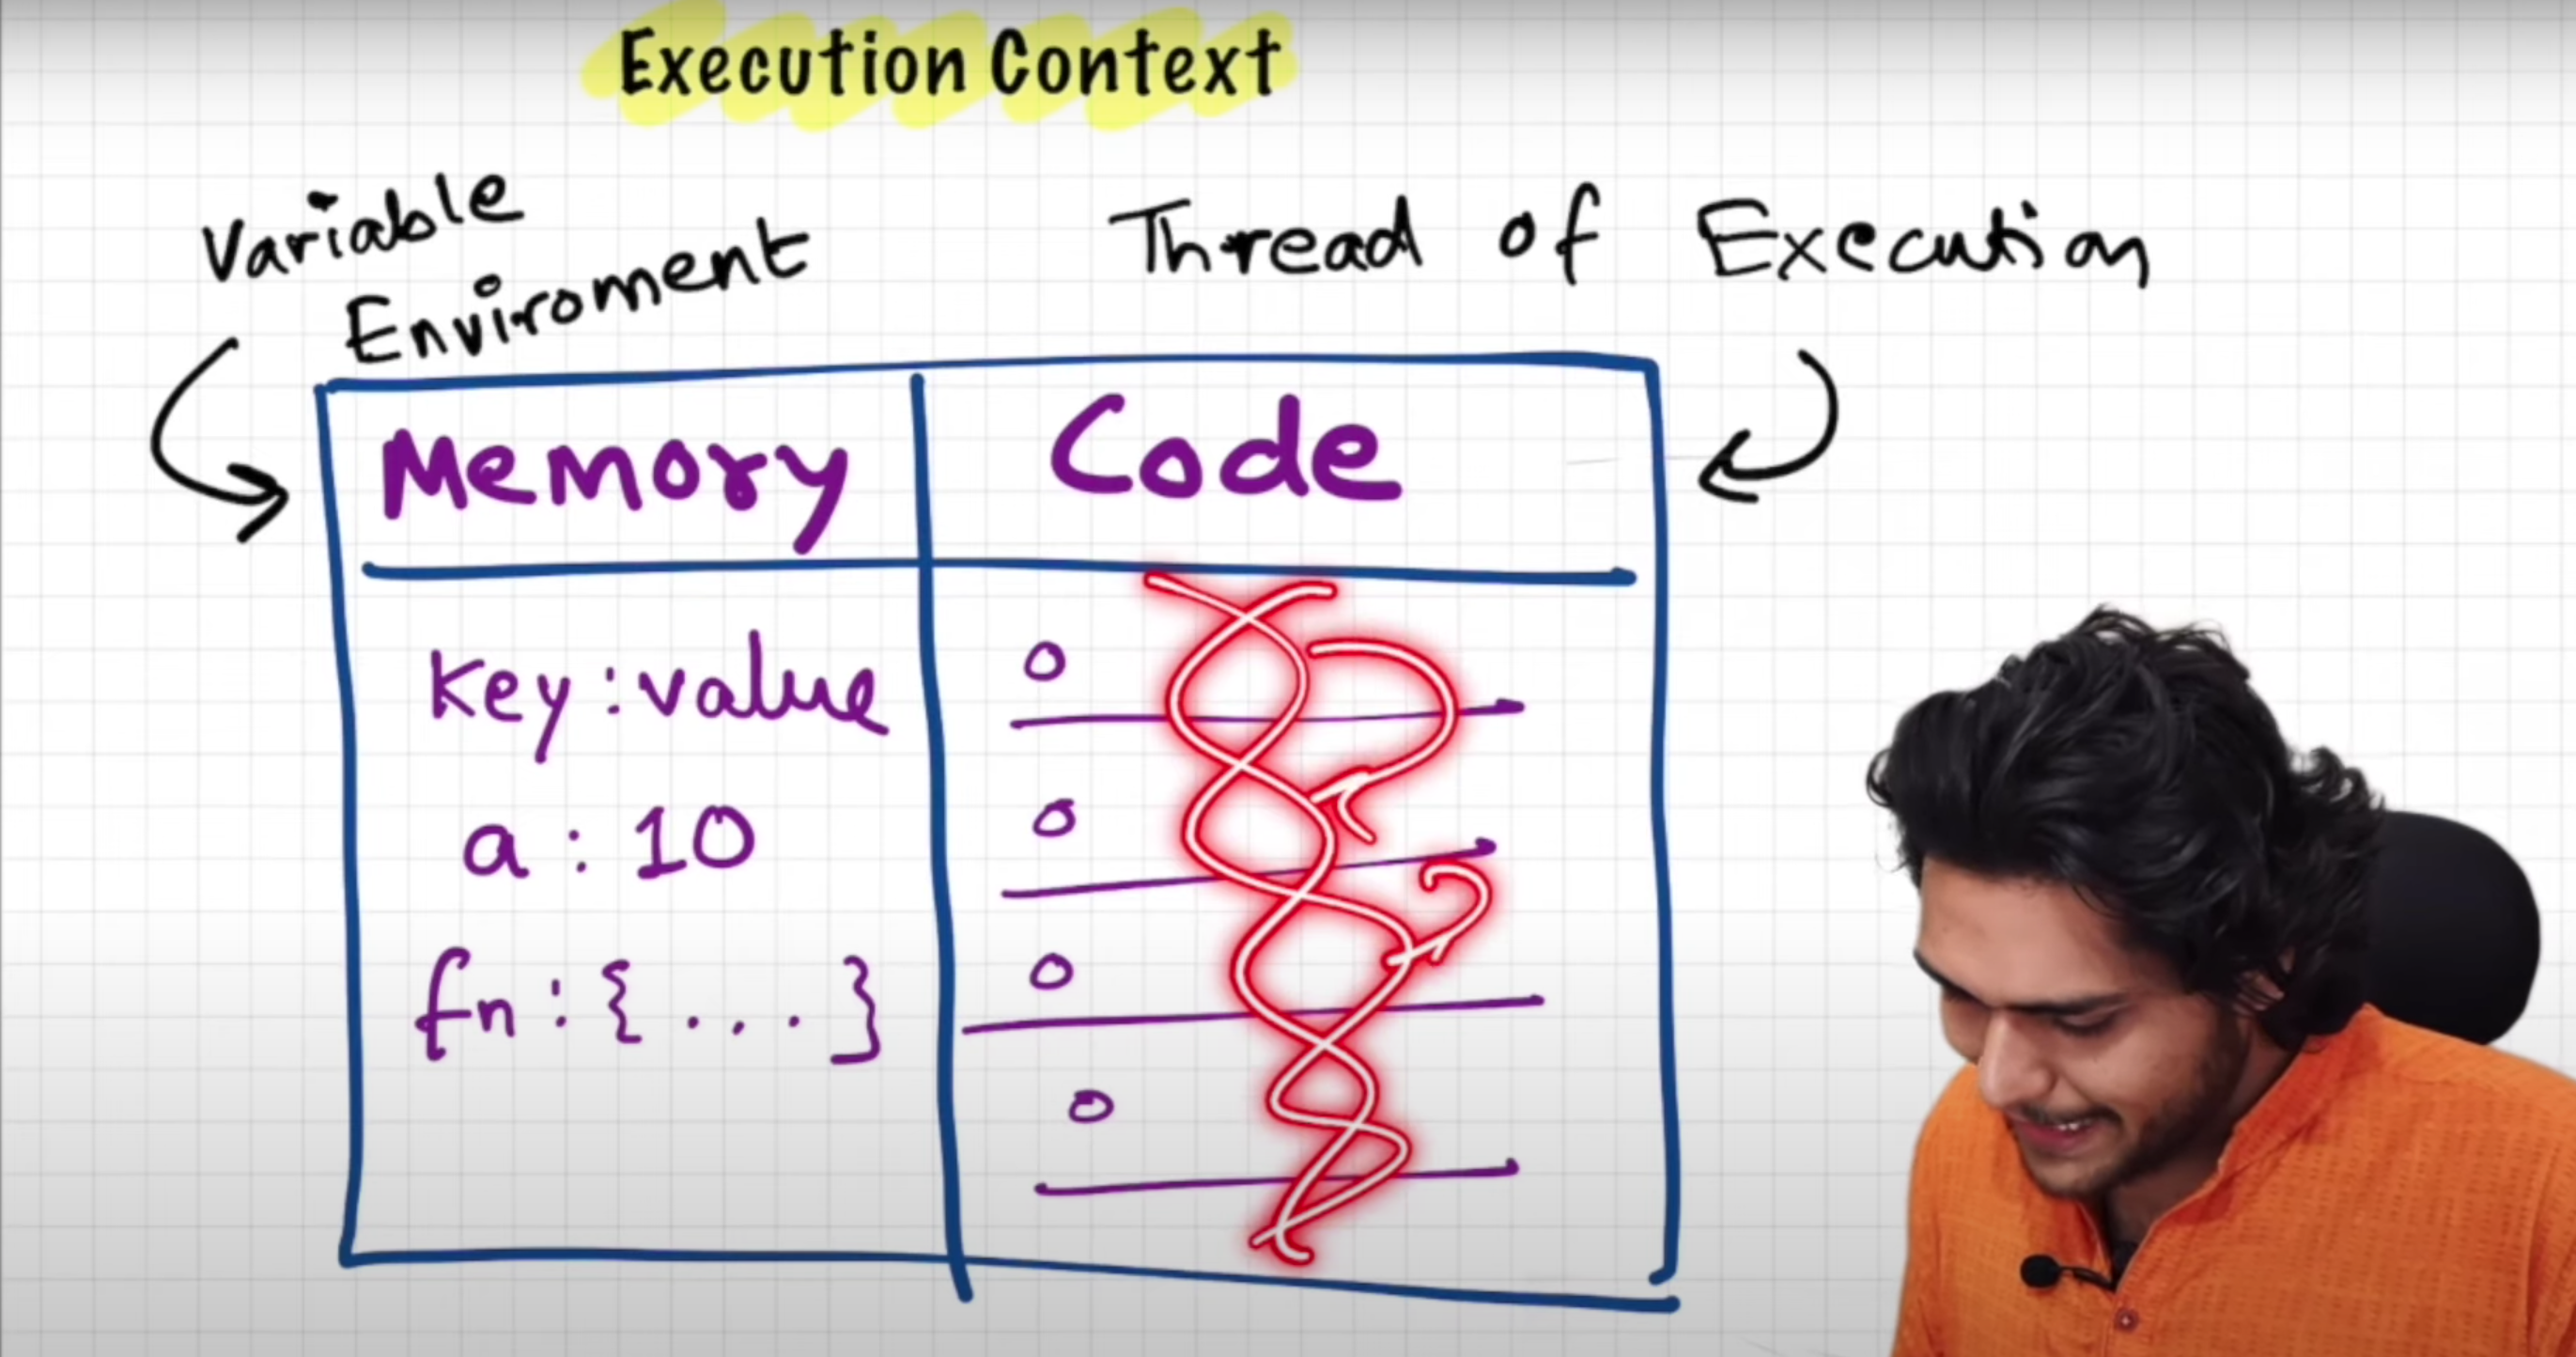 Execution Context
Variable
Enviroment
Thread of Execution
Memory
Code
key : value
a : 10
fn : { . . . }
o
o
o
o